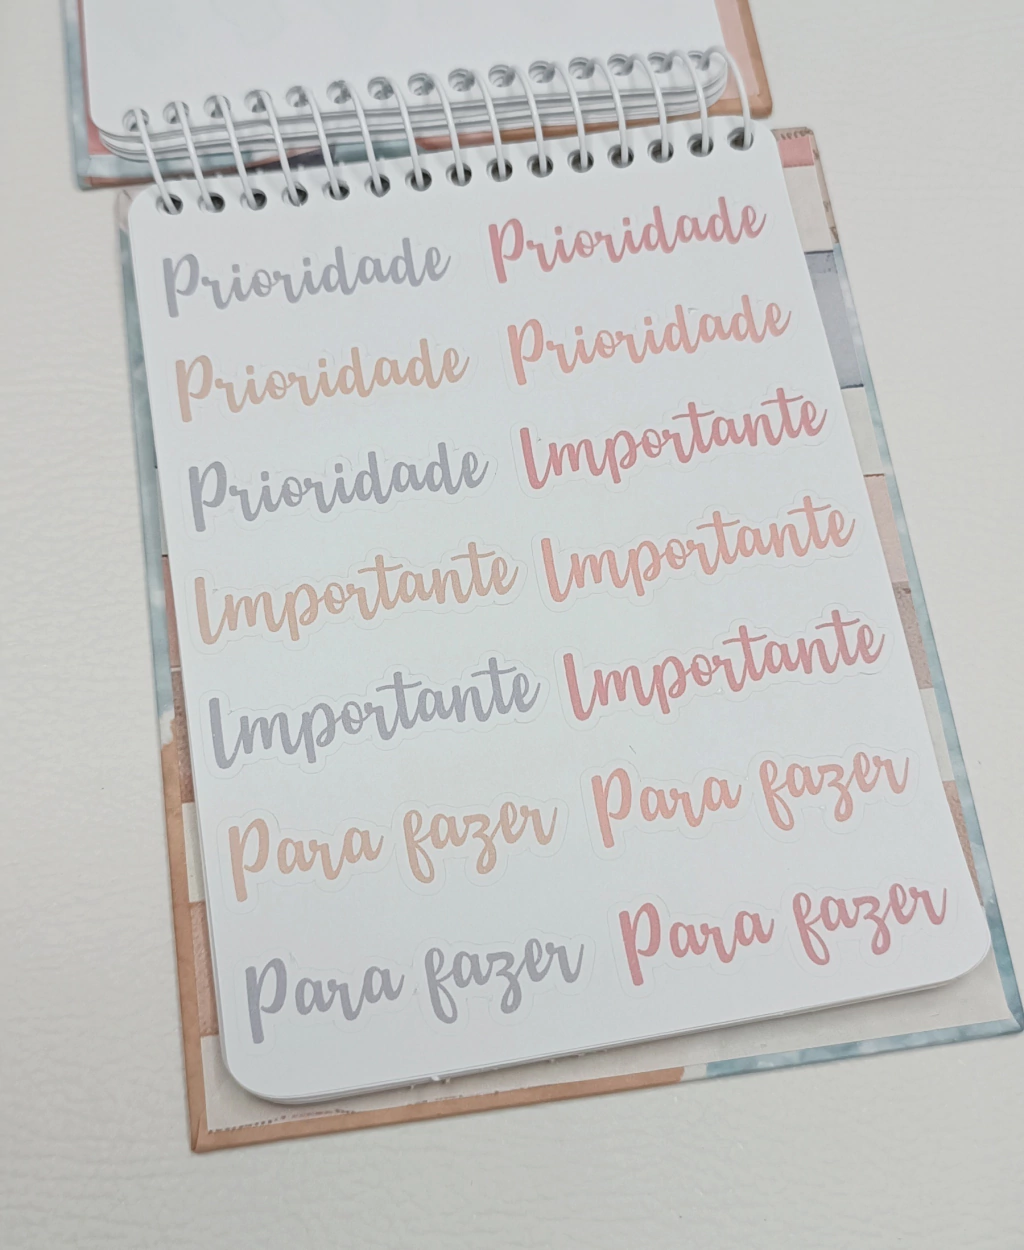 Prioridade Prioridade
Prioridade Prioridade
Prioridade Importante
Importante Importante
Importante Importante
Para fazer Para fazer
Para fazer Para fazer